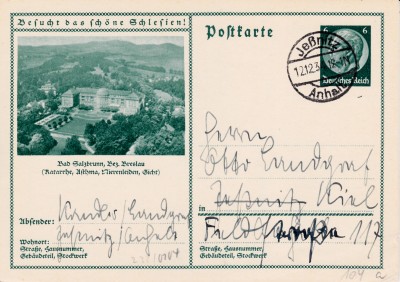 Besucht das schöne Schlesien!
Bad Salzbrunn, Bez. Breslau
(Katarrhe, Asthma, Nierenleiden, Gicht)
Absender:
Landgraf
Jeßnitz/Anhalt
Wohnort:
Straße, Hausnummer,
Gebäudeteil, Stockwerk
Postkarte
6 6
Deutsches Reich
Jeßnitz
12.12.3
Anhalt
Herrn
Otto Landgraf
in Jeßnitz Kiel
Feldstraße 117
Straße, Hausnummer,
Gebäudeteil, Stockwerk
104 a